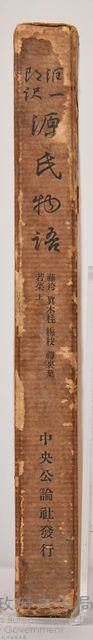 潤一郎訳
源氏物語
藤袴 真木柱 梅枝 藤裏葉
若菜上
中央公論社發行
政府
Government